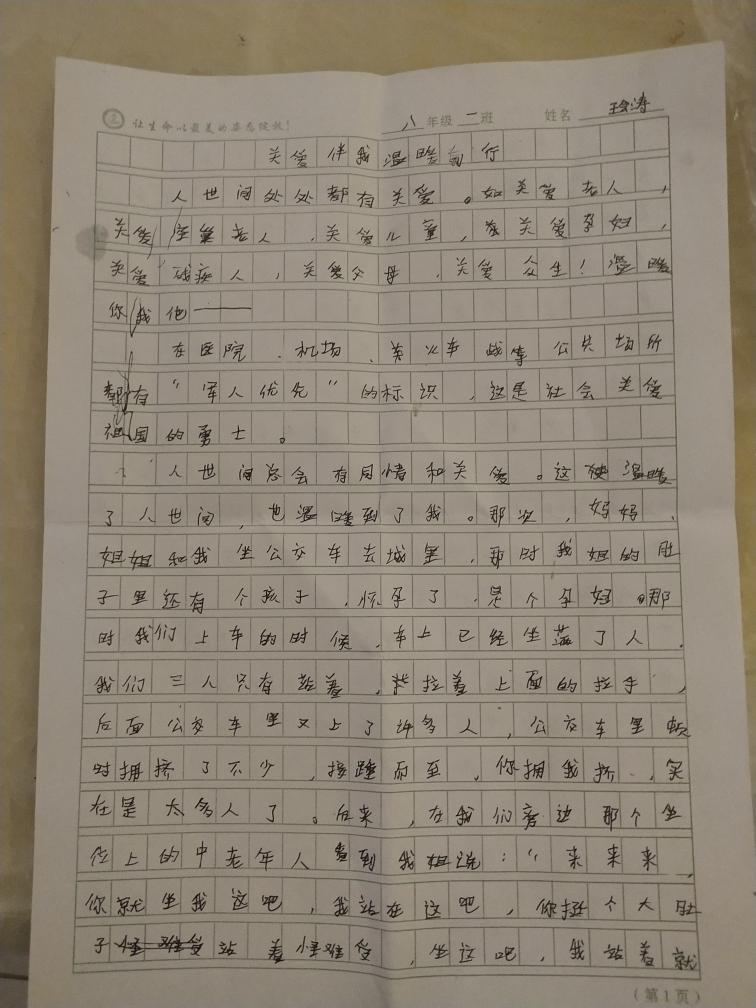 让生命以最美的姿态绽放！ 八年级二班 姓名
关爱伴我温暖前行
人世间处处都有关爱。如关爱老人，
关爱空巢老人，关爱儿童，关爱孕妇，
关爱残疾人，关爱父母，关爱众生！温暖
你我他——
在医院、机场、火车战等公共场所
都有“军人优先”的标识，这是社会关爱
祖国的勇士。
人世间总会有同情和关爱。这使温暖
了人世间，也温暖到了我。那次，妈妈、
姐姐和我坐公交车去城里，那时我姐的肚
子里还有个孩子，怀孕了，是个孕妇。那
时我们上车的时候，车上已经坐满了人，
我们三人只有站着，拉着上面的拉手，
后面公交车里又上了许多人，公交车里顿
时拥挤了不少，接踵而至，你拥我挤，实
在是太多人了。后来，在我们旁边那个坐
位上的中老年人看到我姐说：“来来来，
你就坐我这吧，我站在这吧，你挺个大肚
子站着怪难受，坐这吧，我站着就
（第1页）